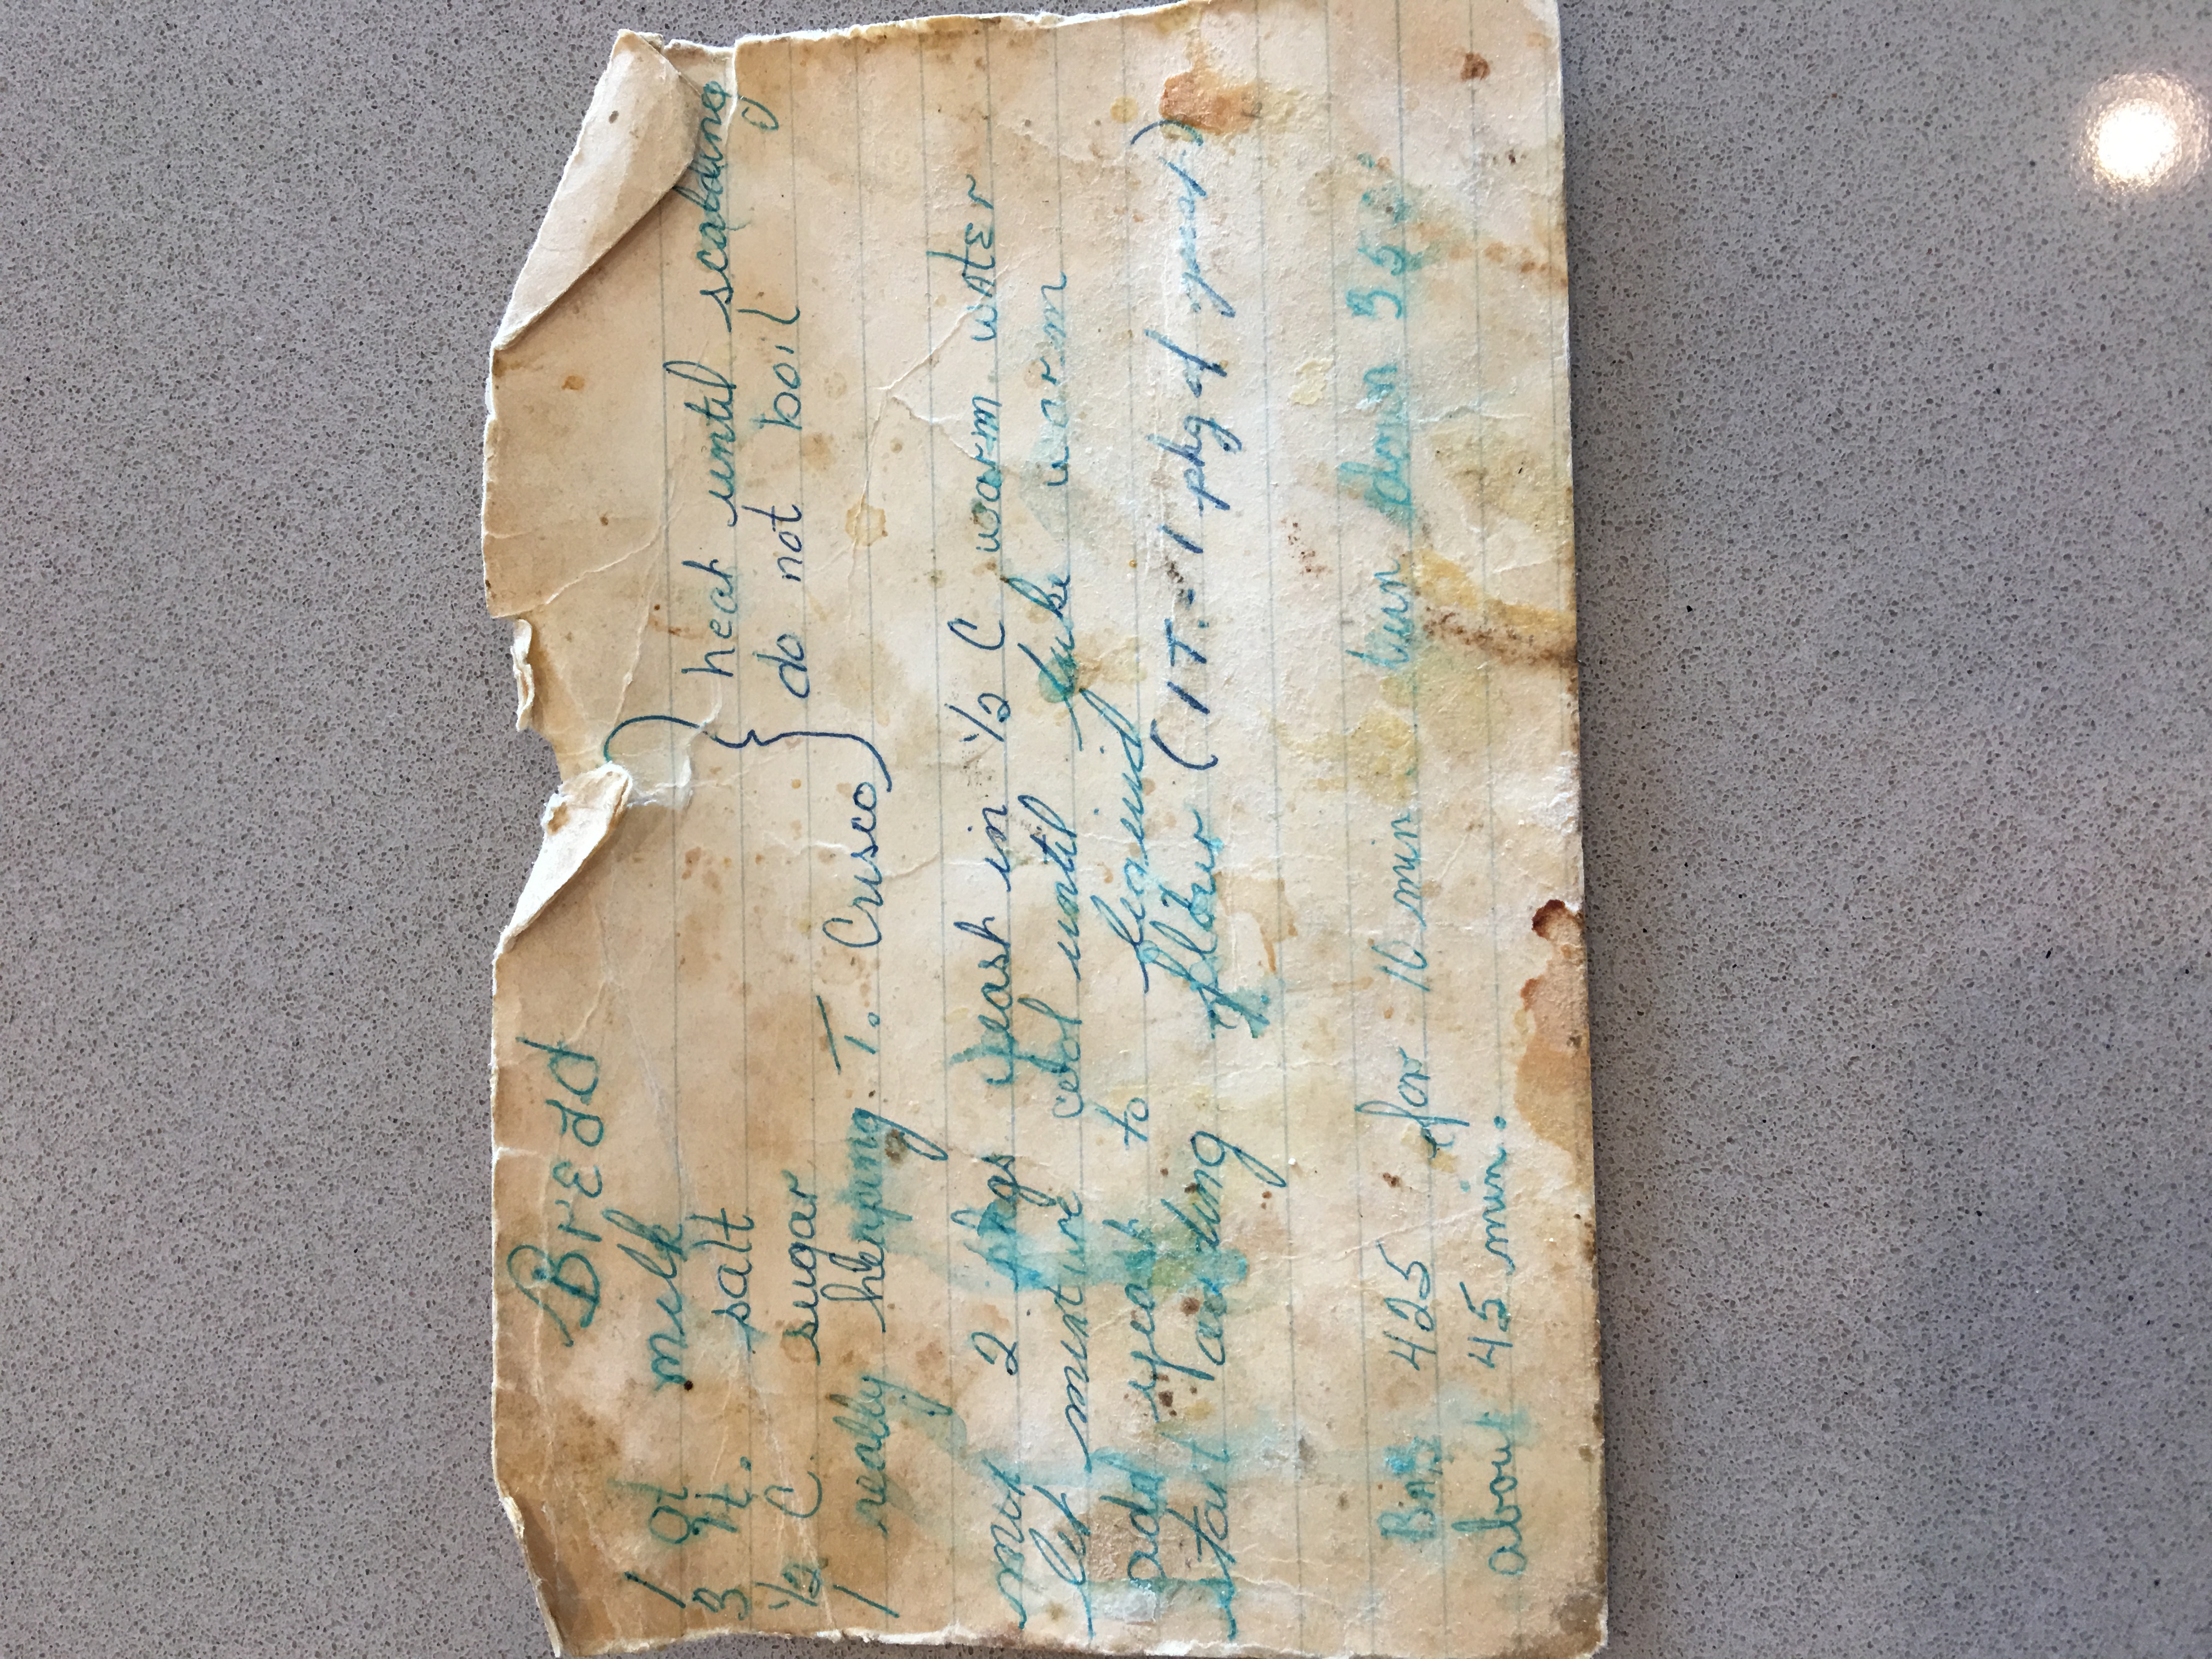 Bread
1 qt milk
3 t. salt
1/2 C sugar
1 really heaping T. Crisco
} heat until scalding
do not boil
mix 2 pkgs yeast in 1/2 C warm water
let mixture cool until luke warm
add yeast to
start adding flour (1 T. - 1 pkg of yeast)
Bake 425 for 10 min turn down 350
about 45 min.